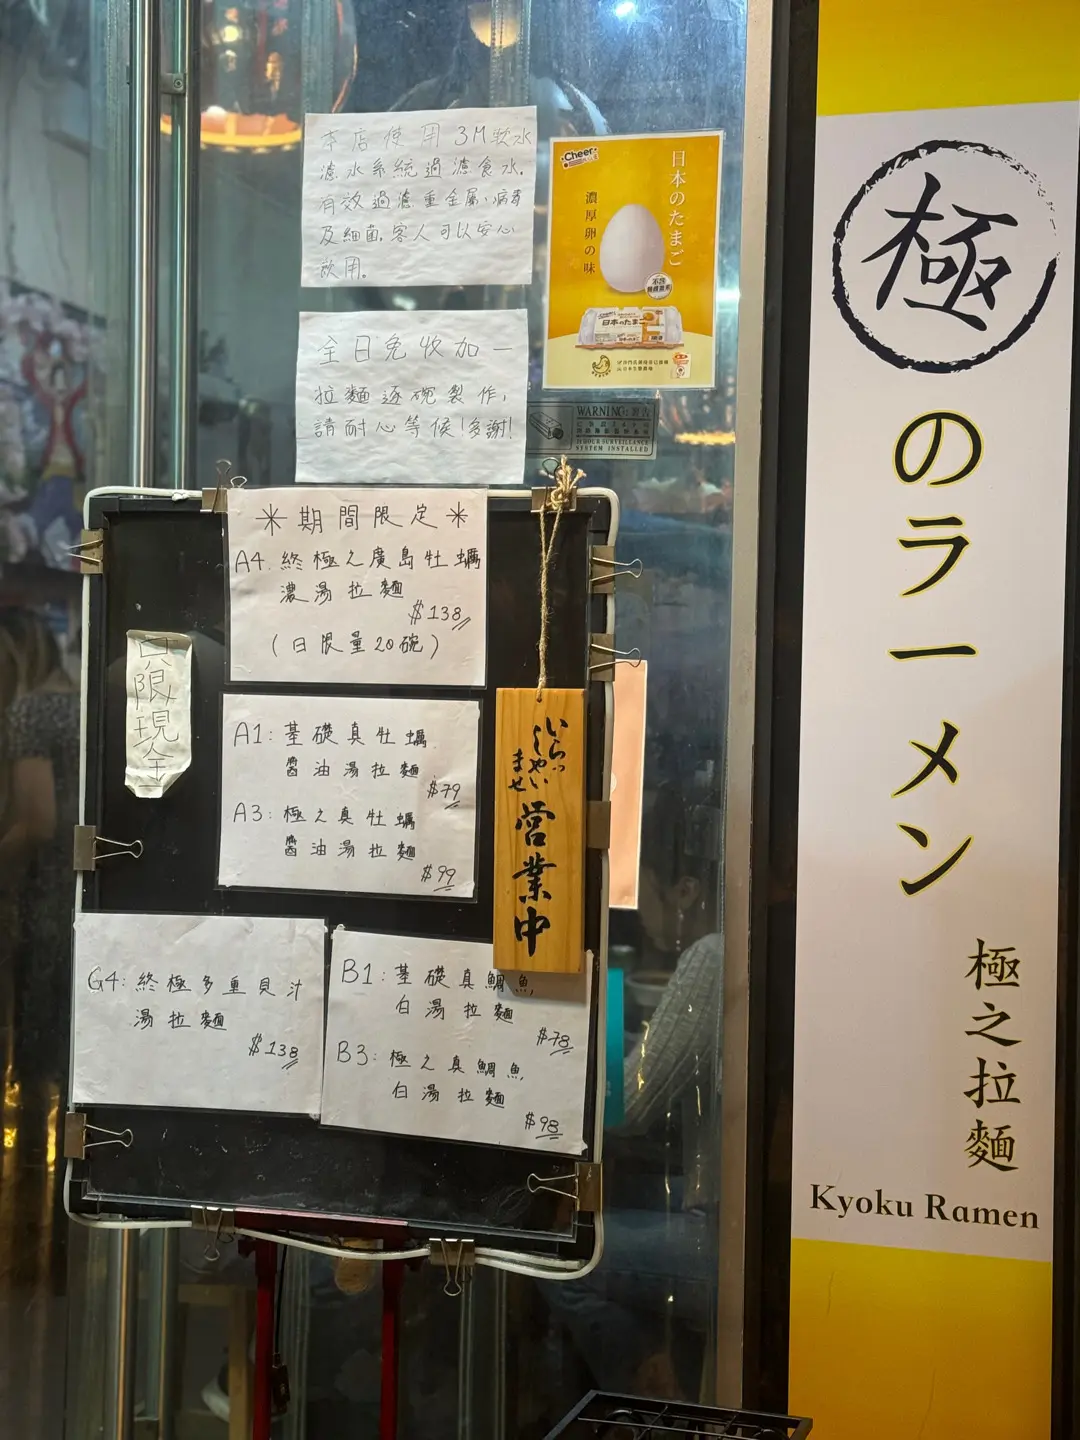 本店使用3M軟水
濾水系統過濾食水.
有效過濾重金屬、病毒
及細菌,客人可以安心
飲用。
全日免收加一
拉麵逐碗製作,
請耐心等候!多謝!
Cheer
日本のたまご
濃厚卵の味
日本のたまご
WARNING:警告
24 HOUR SURVEILLANCE
SYSTEM INSTALLED
*期間限定*
A4. 終極之廣島牡蠣
濃湯拉麵
$138
(日限量20碗)
只限現金
A1: 基礎真牡蠣
醬油湯拉麵
$79
A3: 極之真牡蠣
醬油湯拉麵
$99
いらっ
しゃい
ませ
営業中
G4: 終極多重貝汁
湯拉麵
$138
B1: 基礎真鯛魚
白湯拉麵
$78
B3: 極之真鯛魚
白湯拉麵
$98
極
のラーメン
極之拉麵
Kyoku Ramen